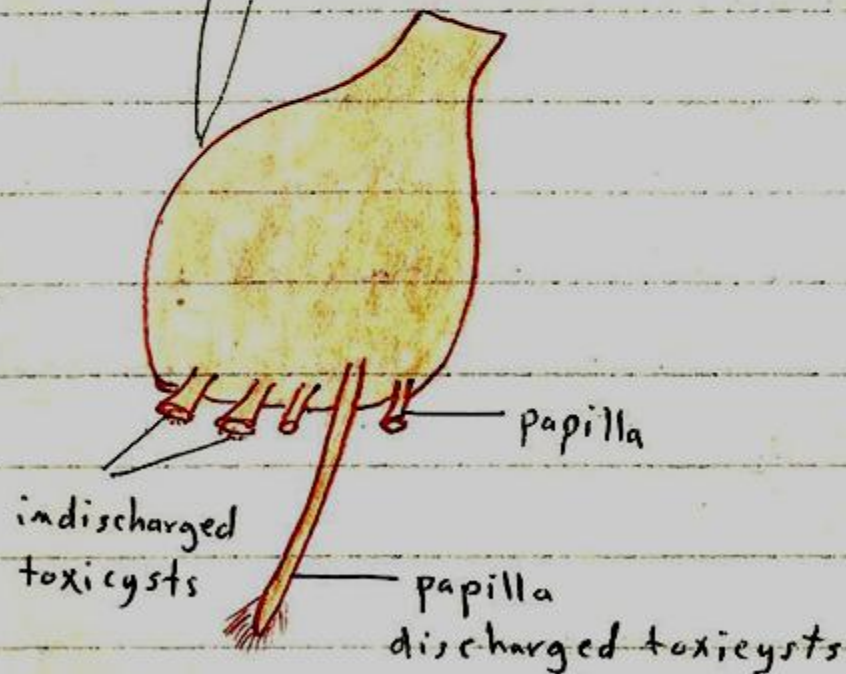 papilla
indischarged
toxicysts
papilla
discharged toxicysts